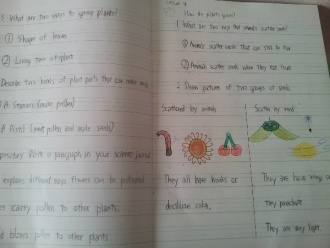 What are two ways to group plants?
① Shape of leaves
② Living time of plant
Describe two kinds of plant parts that can make seeds
A: Stamens (make pollen)
A: Pistil (meet pollen and make seeds)
Write a paragraph in your science journal
explains different ways flowers can be pollinated.
carry pollen to other plants.
blows pollen to other plants.
How do plants grow?
1. What are two ways that animals scatter seeds?
① Animals scatter seeds that can stick to fur
② Animals scatter seeds when they eat fruit
2. Draw picture of two groups of seeds
Scattered by animals
Scatter by wind
They all have hooks or
delicious cake.
They are have wings or
tiny parachute
They are very light.